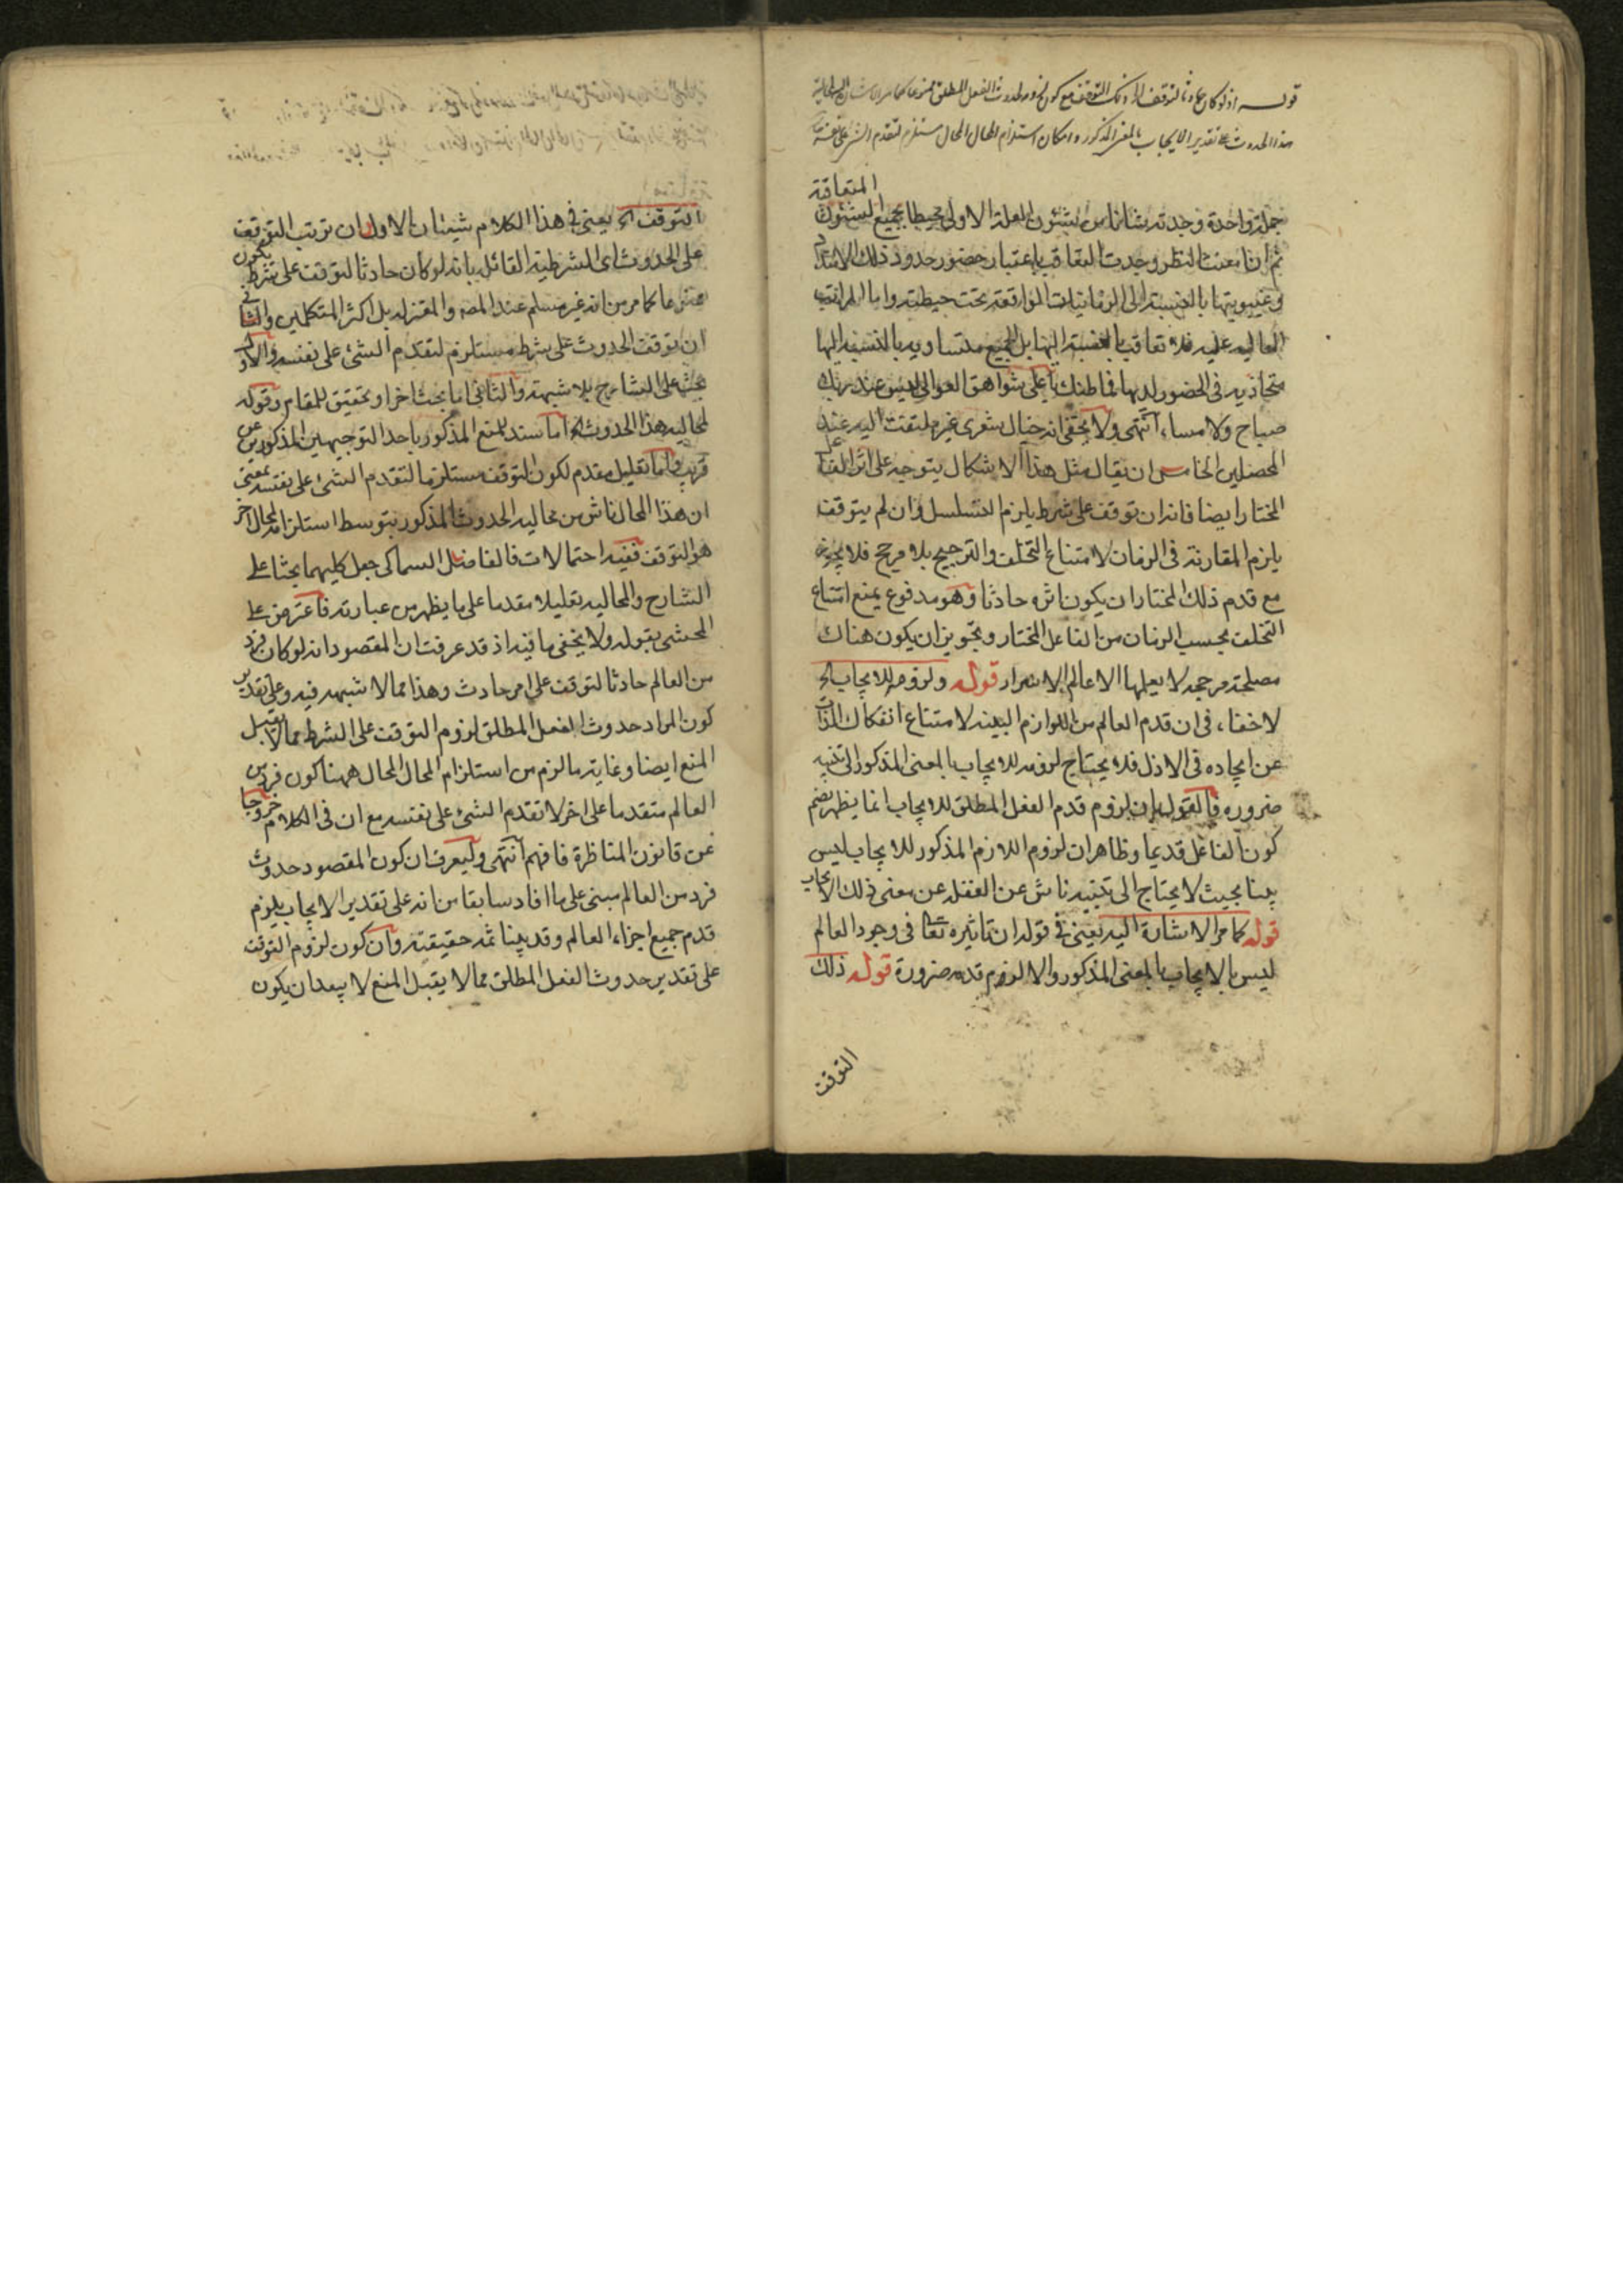 قوله اذ لو كان حادثا لتوقف الخ وذلك التوقف مع كون لزومه لحدوث الفعل المطلق ممنوعا كما مر الاشارة
هذا الحدوث على تقدير الايجاب بالمعنى المذكور وامكان استلزام المحال المحال مستلزم لتقدم الشئ على نفسه
المتعاقبة
جملة واحدة وجدته شانا من شئون العلة الاولى محيطا بجميع الشئون
ثم ان امعنت النظر وجدت التعاقب باعتبار حضور حدود ذلك الامتداد
وغيبوبتها بالنسبة الى الزمانيات الواقعة تحت حيطته واما المراتب
العالية عليه فلا تعاقب بالنسبة اليها بل الجميع متساوية بالنسبة اليها
متحاذية فى الحضور لديها فما ظنك باعلى شواهق العوالى ليس عند ربك
صباح ولا مساء انتهى ولا يخفى انه خيال شعرى غير ملتفت اليه عند
المحصلين الخامس ان يقال مثل هذا الاشكال يتوجه على اثر الفاعل
المختار ايضا فانه ان توقف على شرط يلزم التسلسل وان لم يتوقف
يلزم المقارنة فى الزمان لامتناع التخلف والترجيح بلا مرجح فلا يجوز
مع قدم ذلك المختار ان يكون اثره حادثا وهو مدفوع بمنع امتناع
التخلف بحسب الزمان من الفاعل المختار وتجويز ان يكون هناك
مصلحة مرجحة لا يعلمها الا عالم الاسرار قوله ولزومه للايجاب الخ
لا خفاء فى ان قدم العالم من اللوازم البينة لامتناع انفكاك الذات
عن ايجاده فى الازل فلا يحتاج لزومه للايجاب بالمعنى المذكور الى تنبيه
ضروره فالقول بان لزوم قدم الفعل المطلق للايجاب انما يظهر بضم
كون الفاعل قديما وظاهر ان لزوم اللازم المذكور للايجاب ليس
بينا بحيث لا يحتاج الى تنبيه ناش عن الغفلة عن معنى ذلك الايجاب
قوله كما مر الاشارة اليه يعنى فى قوله ان تاثيره تعا فى وجود العالم
ليس بالايجاب بالمعنى المذكور والا لزم قدمه ضرورة قوله ذلك
التوقف
التوقف الخ يعنى فى هذا الكلام شيئان الاول ان ترتب التوقف
على الحدوث اى الشرطية القائل بانه لو كان حادثا لتوقف على شرط يكون
ممنوعا كما مر من انه غير مسلم عند المصه والمعتزله بل اكثر المتكلمين والثانى
ان توقف الحدوث على شرط مستلزم لتقدم الشئ على نفسه والاول
بحث على الشارح بلا شبهة والثانى اما بحث اخر او تحقيق للمقام وقوله
لمحاليه هذا الحدوث الخ اما سند للمنع المذكور باحد التوجيهين المذكورين عن
قريب واما تعليل مقدم لكون التوقف مستلزما لتقدم الشئ على نفسه بمعنى
ان هذا المحال ناش من محاليه الحدوث المذكور بتوسط استلزامه لمحال اخر
هو التوقف ففيه احتمالات فالفاضل السماكى جعل كليهما بحثا على
الشارح والمحاليه تعليلا مقدما على ما يظهر من عبارته فاعترض على
المحشى بقوله ولا يخفى ما فيه اذ قد عرفت ان المقصود انه لو كان فرد
من العالم حادثا لتوقف على امر حادث وهذا مما لا شبهه فيه وعلى تقدير
كون المراد حدوث الفعل المطلق لزوم التوقف على الشرط مما لا يقبل
المنع ايضا وغاية ما لزم من استلزام المحال المحال ههنا كون فرد من
العالم متقدما على اخر لا تقدم الشئ على نفسه مع ان فى الكلام خروجا
عن قانون المناظرة فافهم انتهى وليعرف ان كون المقصود حدوث
فرد من العالم مبنى على ما افاد سابقا من انه على تقدير الايجاب يلزم
قدم جميع اجزاء العالم وقد بينا ثمه حقيقته وان كون لزوم التوقف
على تقدير حدوث الفعل المطلق مما لا يقبل المنع لا يبعد ان يكون